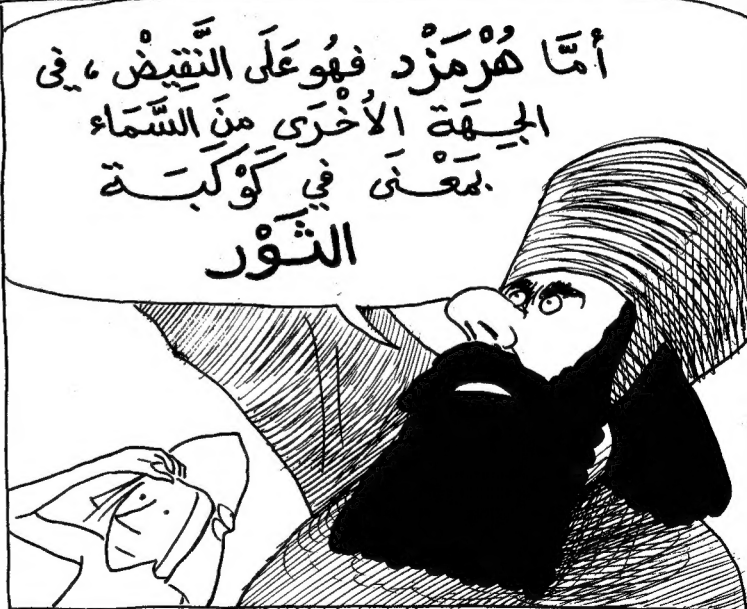 أمَّا هُرْمَزْد فهُو عَلَى النَّقِيضْ، فِي
الجِهَة الأُخْرَى مِنَ السَّمَاء
بمَعْنَى في كَوْكَبَة
الثَوْر